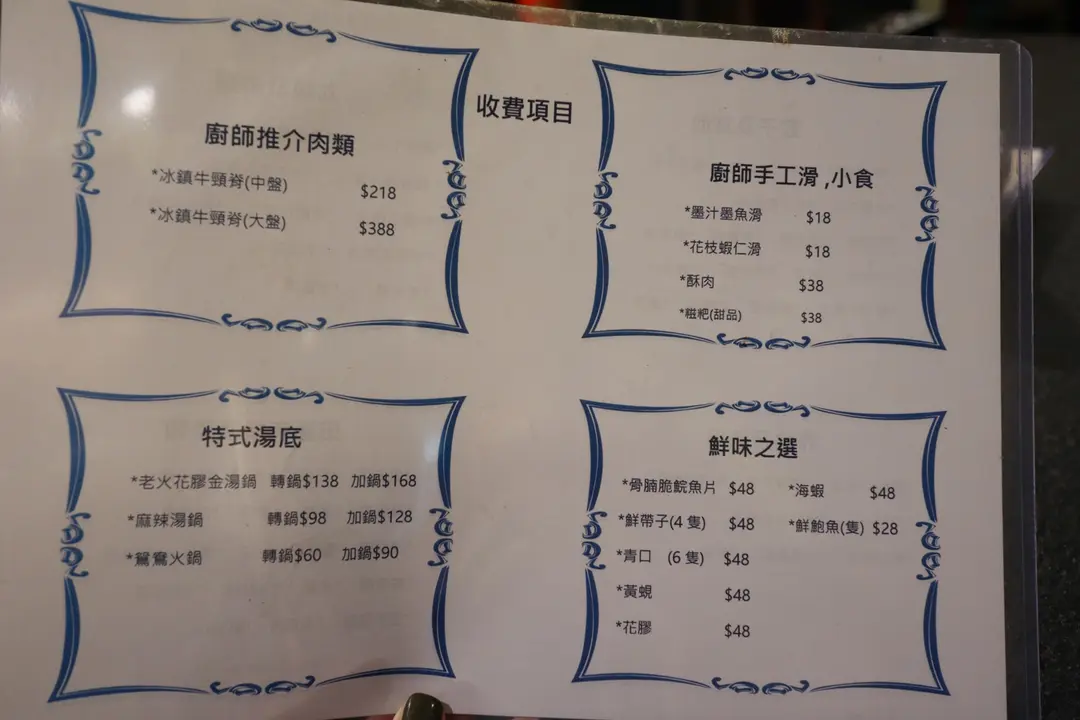 收費項目
廚師推介肉類
*冰鎮牛頸脊(中盤) $218
*冰鎮牛頸脊(大盤) $388
廚師手工滑 ,小食
*墨汁墨魚滑 $18
*花枝蝦仁滑 $18
*酥肉 $38
*糍粑(甜品) $38
特式湯底
*老火花膠金湯鍋 轉鍋$138 加鍋$168
*麻辣湯鍋 轉鍋$98 加鍋$128
*鴛鴦火鍋 轉鍋$60 加鍋$90
鮮味之選
*骨腩脆鯇魚片 $48 *海蝦 $48
*鮮帶子(4 隻) $48 *鮮鮑魚(隻) $28
*青口 (6 隻) $48
*黃蜆 $48
*花膠 $48